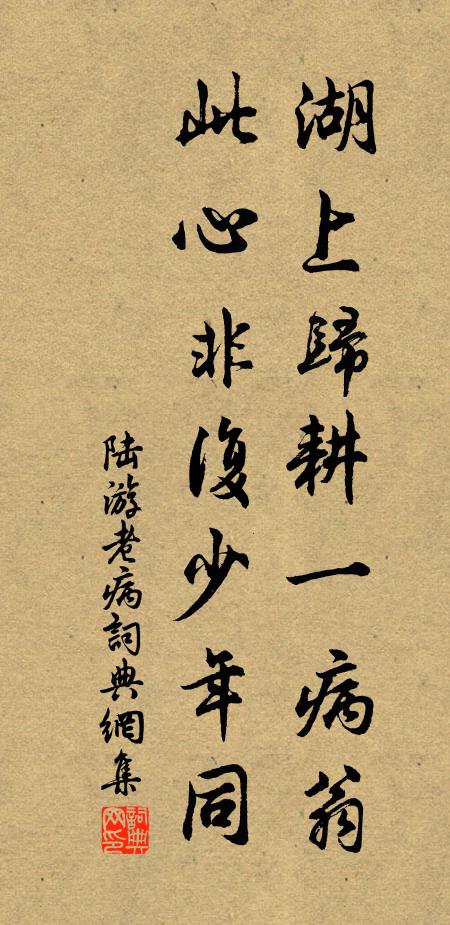 湖上歸耕一病翁
此心非復少年同
陆游老病詞典網集
詞典網印